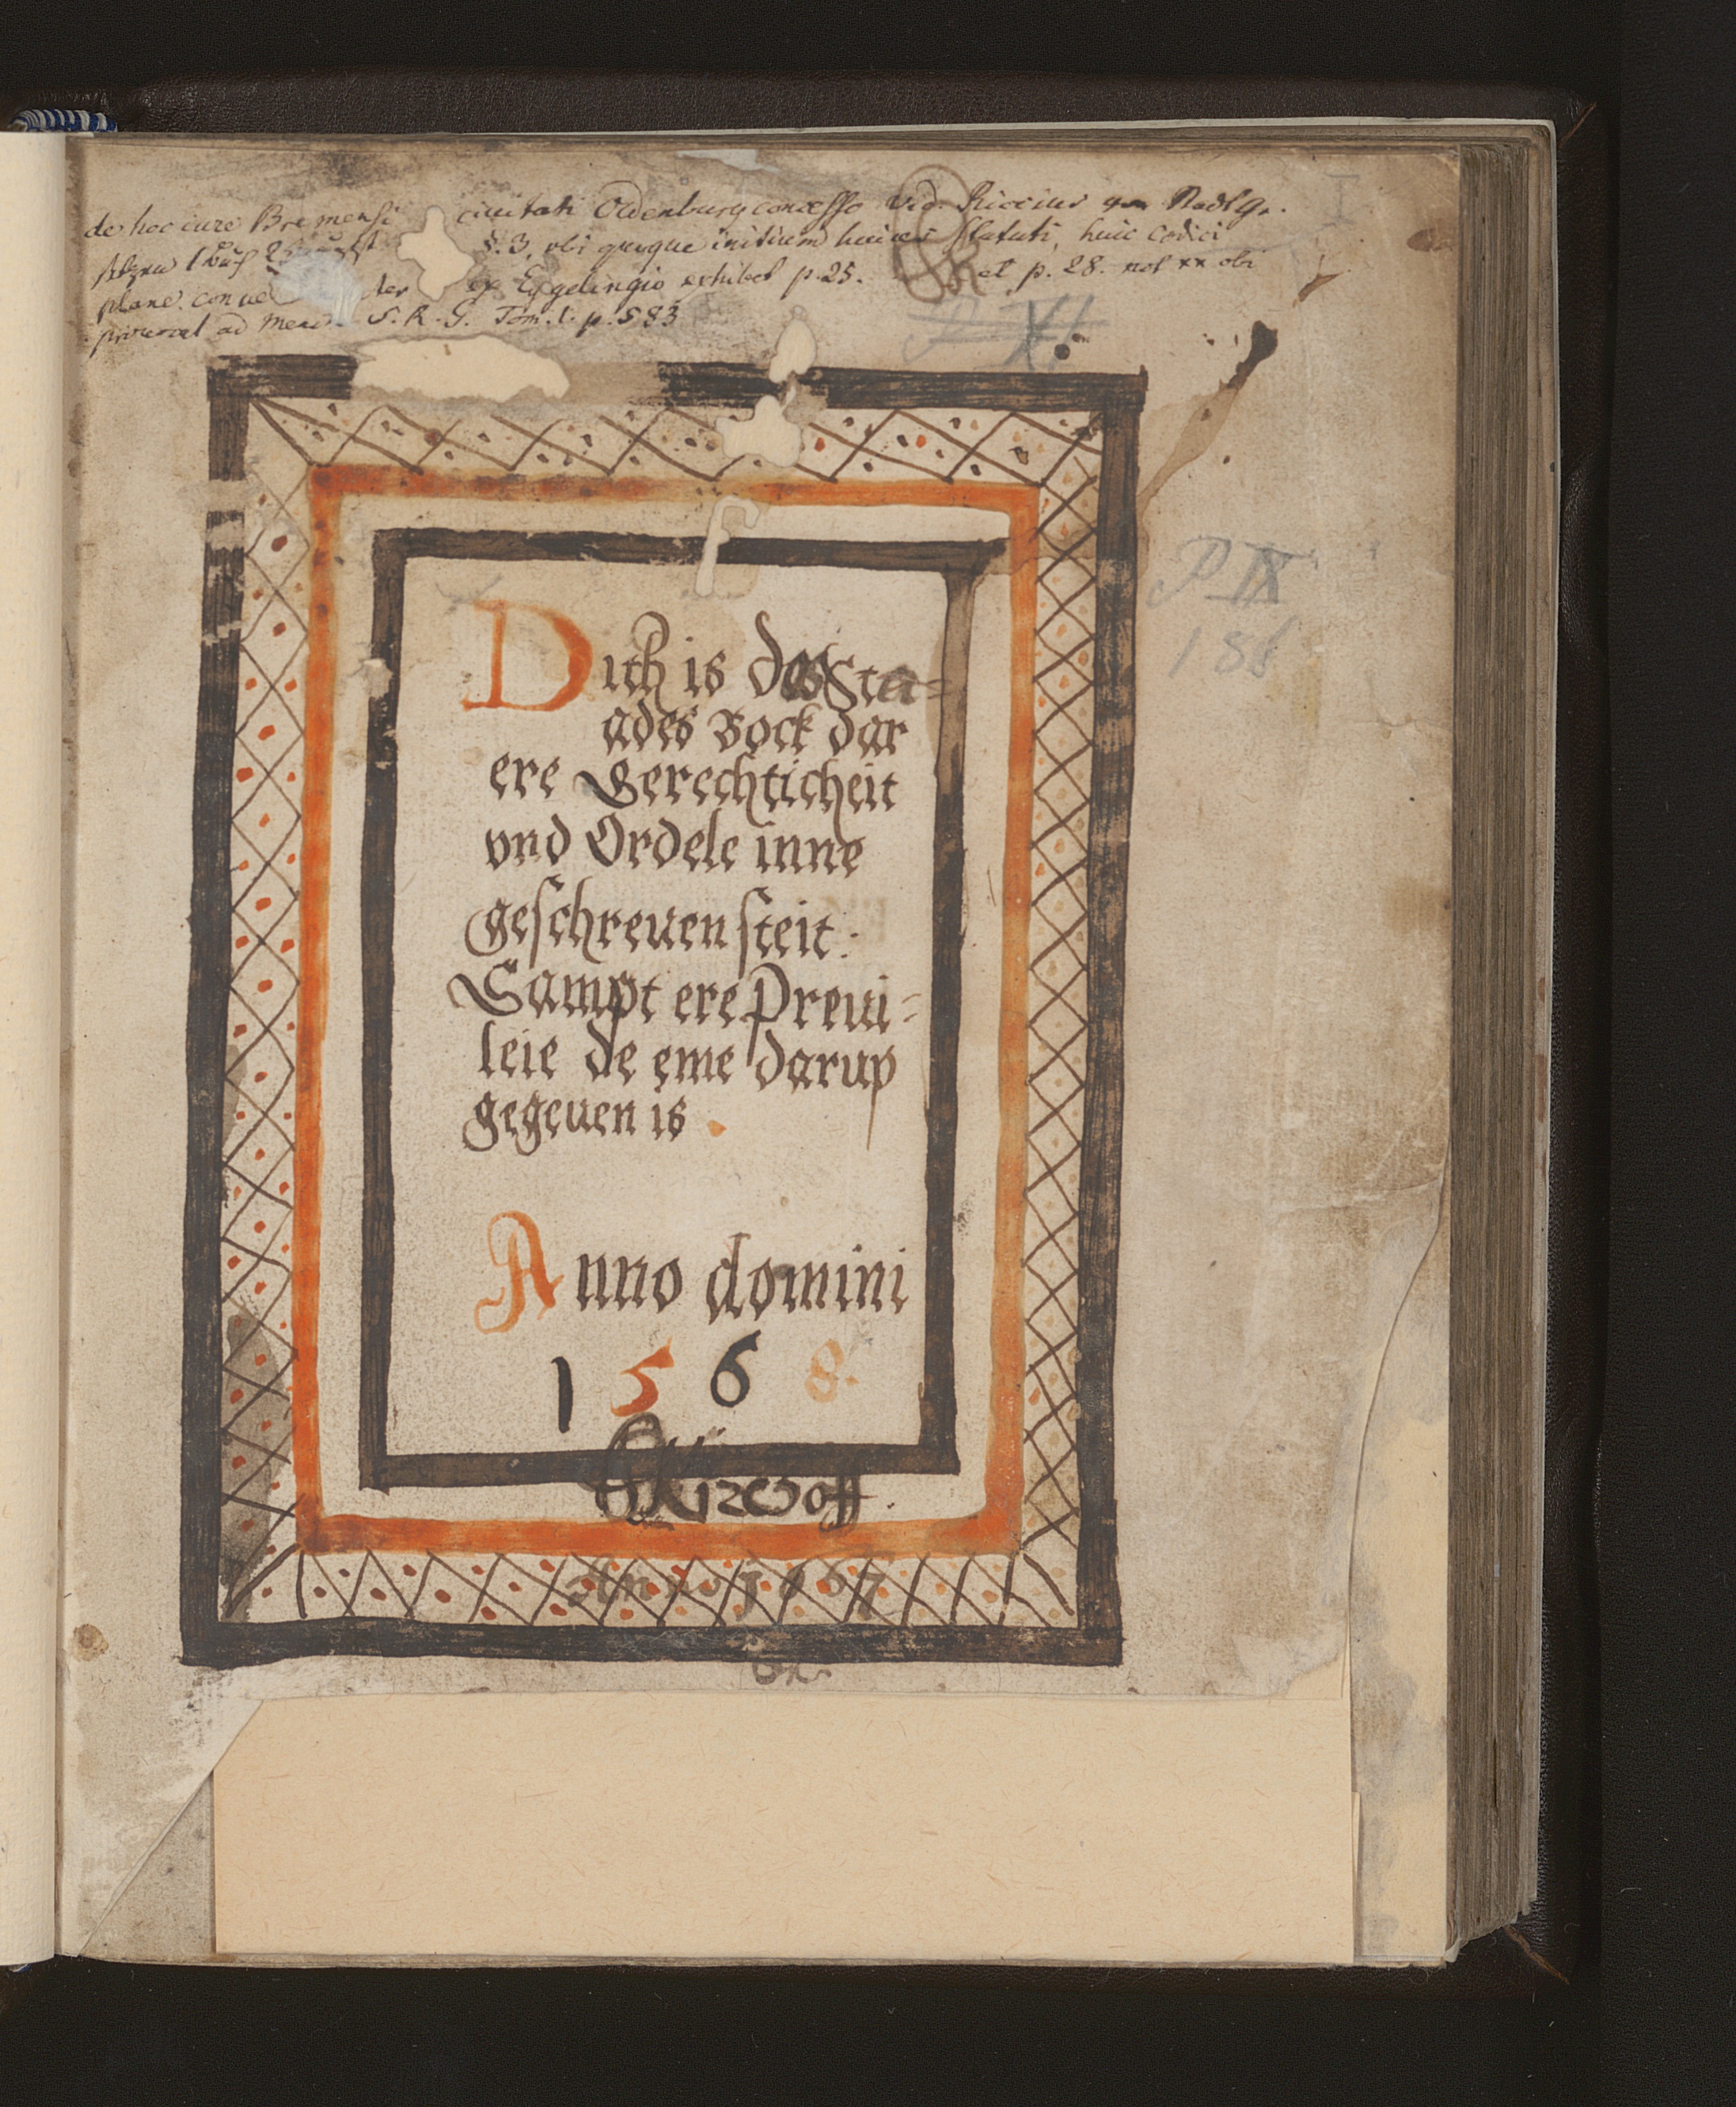 de hoc iure Bremensi civitati Oldenburg concesso vid. Riccius
§. 3. ubi quoque initium huius statuti, huic codici
plane ex Eggelingio exhibet p. 25. et p. 28. not xx ubi
provocat ad S. R. G. Tom. I. p. 583
I
XI
P IX
Dith is des Sta=
ades Bock dar
ere Gerechticheit
vnd Ordele inne
geschreuen steit:
Sampt ere Preui=
leie de eme darup
gegeuen is.
Anno domini
1568.
Anno 1567